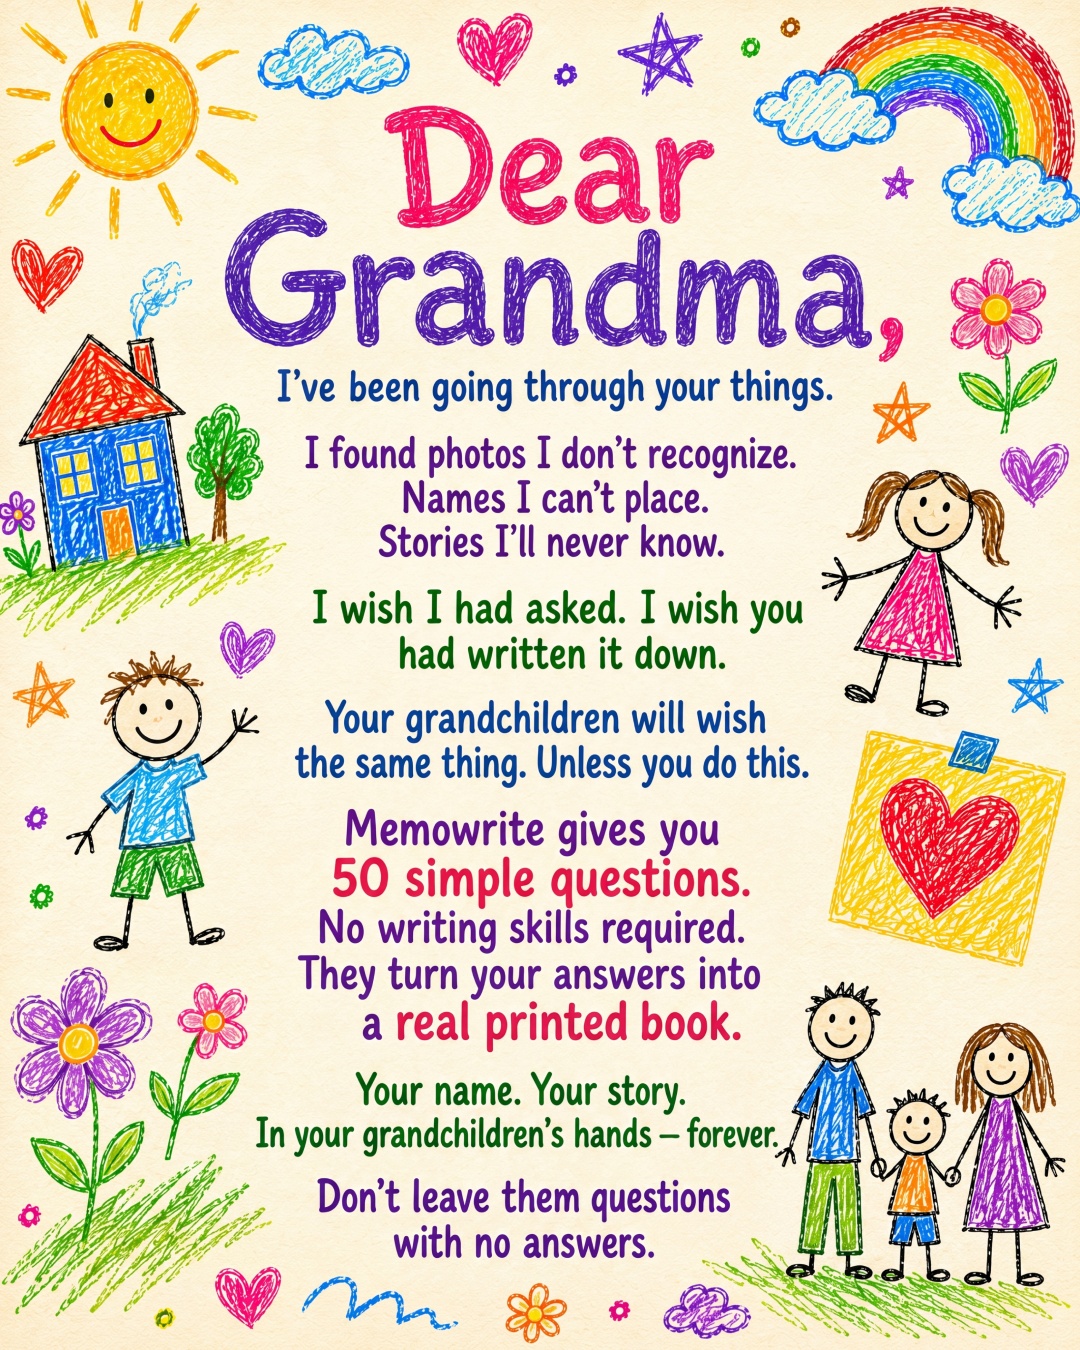 Dear
Grandma,
I've been going through your things.
I found photos I don't recognize.
Names I can't place.
Stories I'll never know.
I wish I had asked. I wish you
had written it down.
Your grandchildren will wish
the same thing. Unless you do this.
Memowrite gives you
50 simple questions.
No writing skills required.
They turn your answers into
a real printed book.
Your name. Your story.
In your grandchildren's hands – forever.
Don't leave them questions
with no answers.